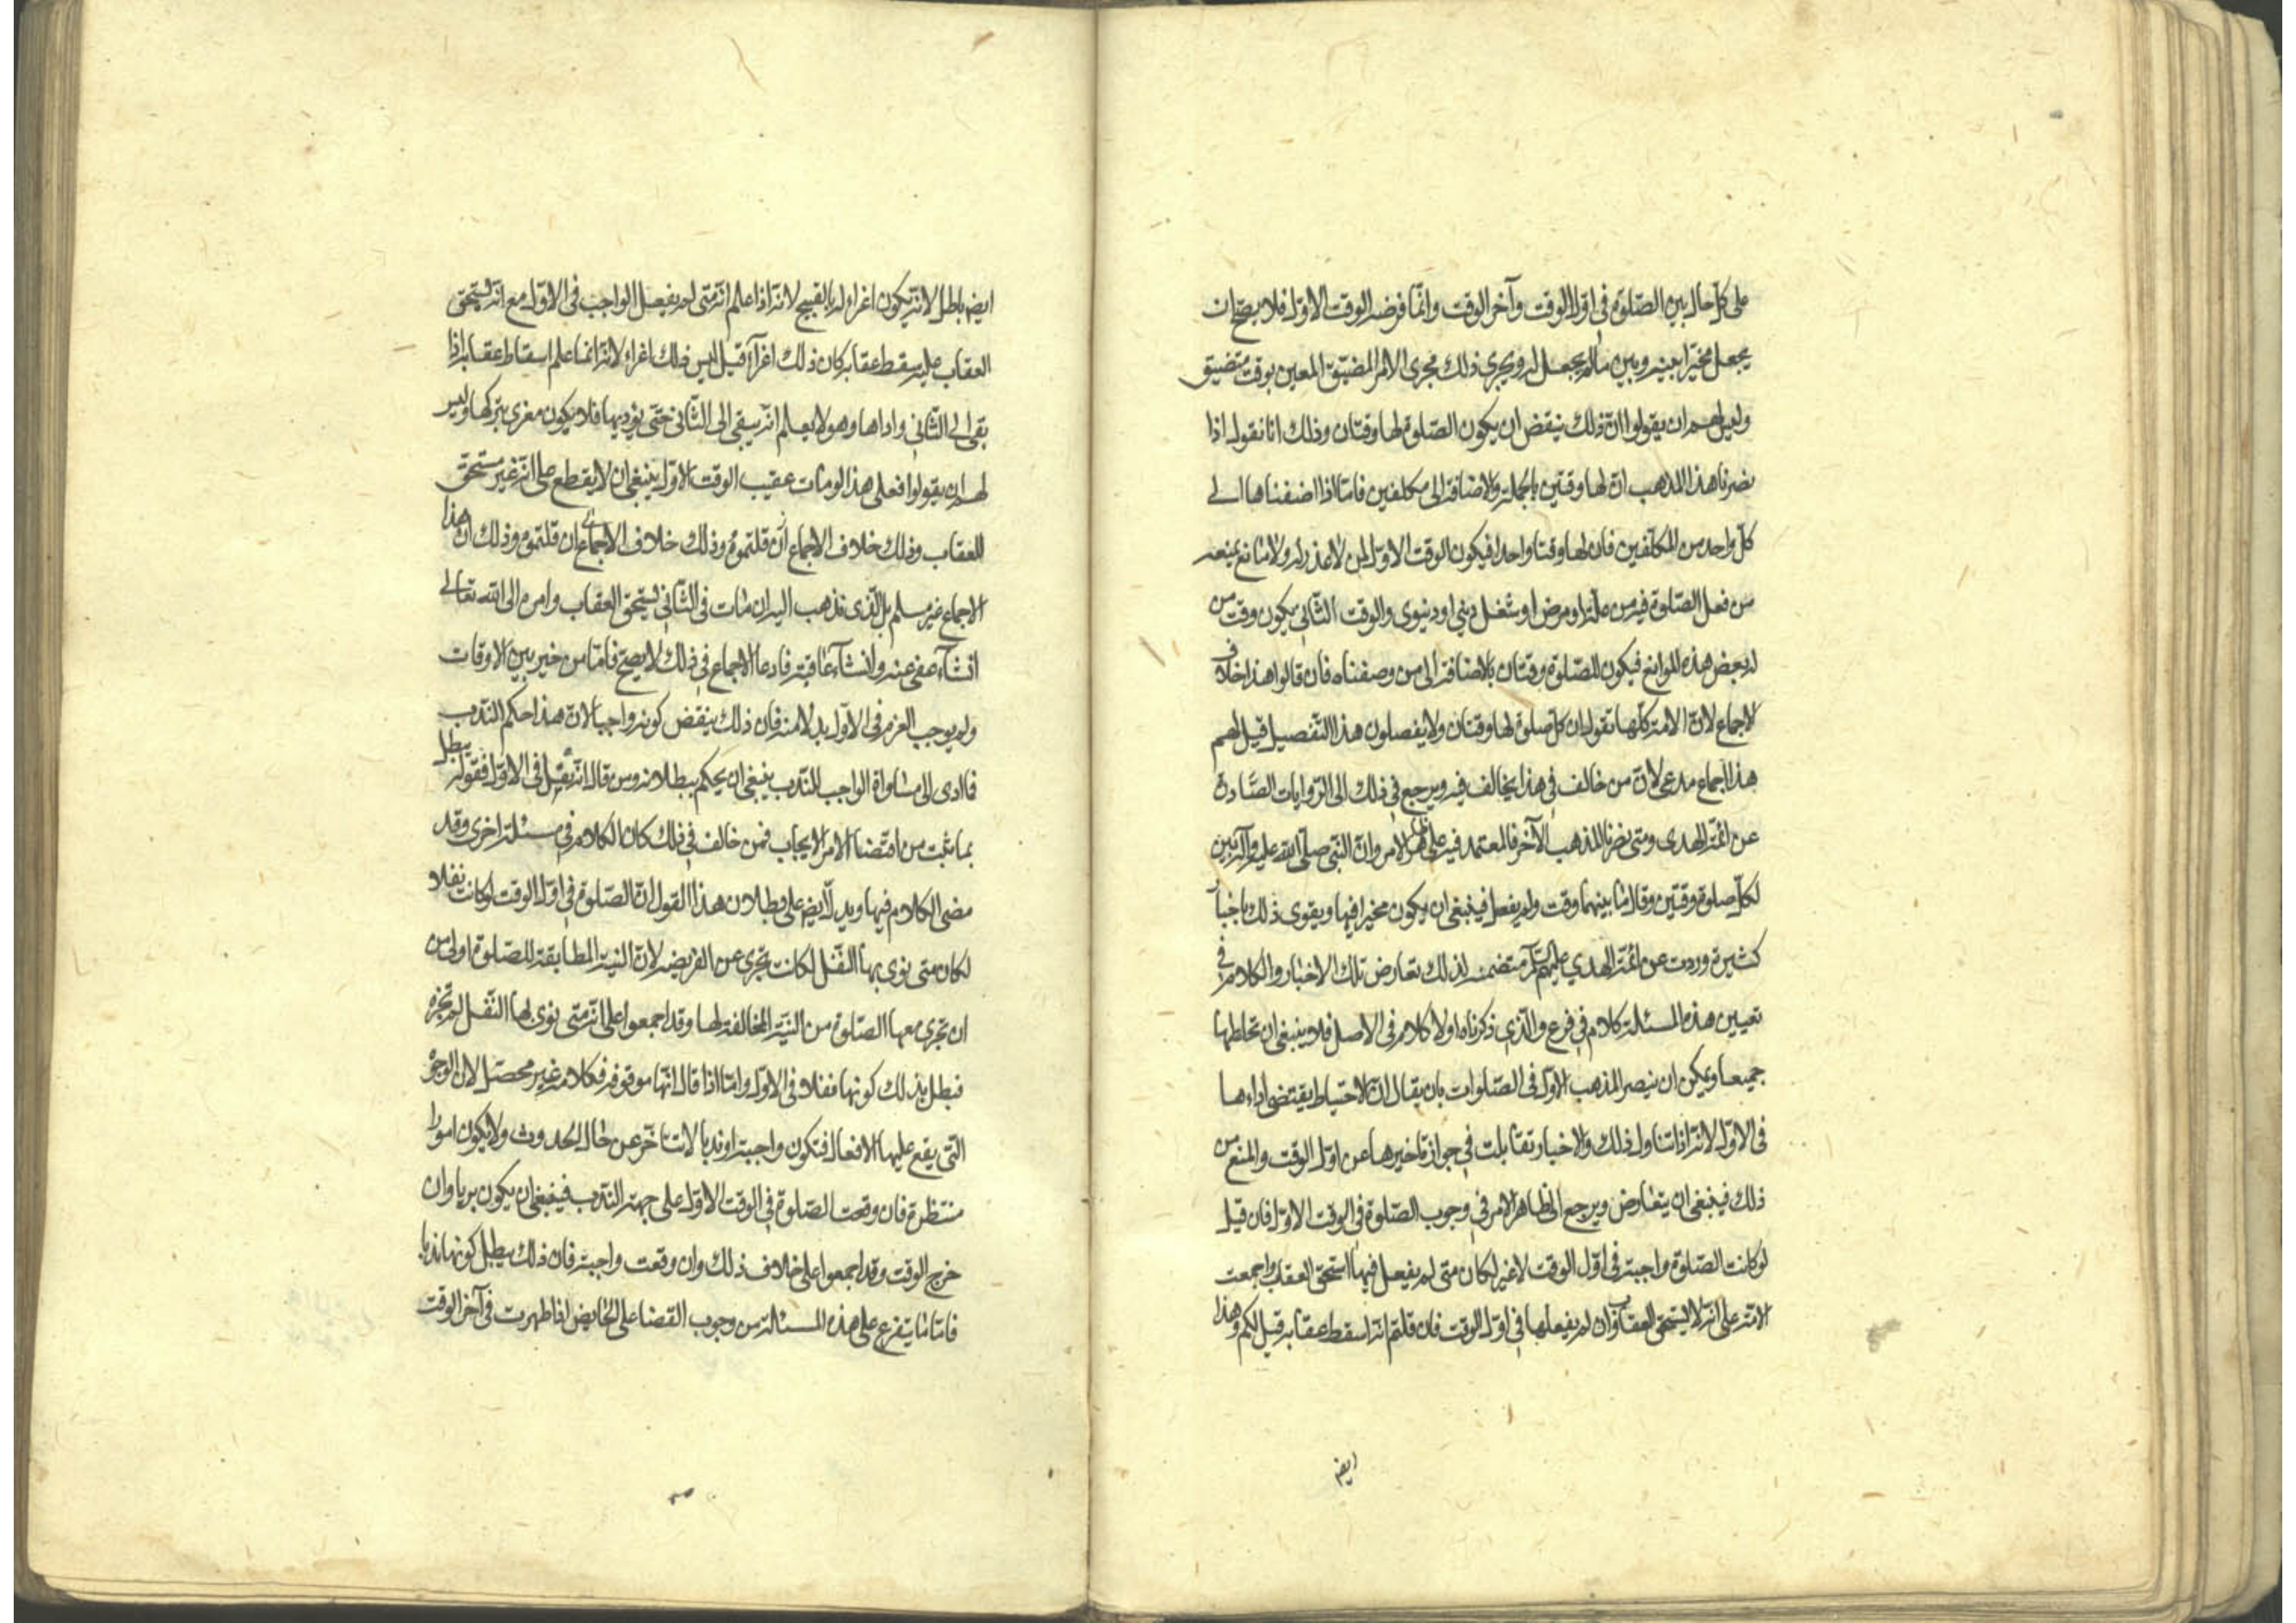 على كلّ حال بين الصّلوة فى اوّل الوقت وآخر الوقت وانّما فرضه الوقت الاوّل فلا يصحّ ان
يجعل مخيّرا بينه وبين ما لم يجعل له ويجرى ذلك مجرى الامر المضيّق المعين بوقت متضيق
وليس لهم ان يقولوا انّ ذلك ينقض ان يكون الصّلوة لها وقتان وذلك انا نقول اذا
نصرنا هذا المذهب انّ لها وقتين بالجملة والاضافة الى مكلفين فامّا اذا اضفناها الى
كلّ واحد من المكلّفين فان لها وقتا واحدا فيكون الوقت الاوّل لمن لا عذر له ولا مانع يمنعه
من فعل الصّلوة فيه من علّة او مرض او شغل دينى او دنيوى والوقت الثّانى يكون وقت من
له بعض هذه الموانع فيكون للصّلوة وقتان بالاضافة الى من وصفناه فان قالوا هذا خلاف
الاجماع لانّ الامّة كلّها تقول ان كلّ صلوة لها وقتان ولا يفصلون هذا التّفصيل قيل لهم
هذا اجماع مدعى لانّ من خالف فى هذا يخالف فيه ويرجع فى ذلك الى الرّوايات الصّادرة
عن ائمّة الهدى ومتى نصرنا المذهب الآخر فالمعتمد فيه على ظاهر الامر وانّ النّبى صلّى الله عليه وآله بيّن
لكلّ صلوة وقتين وقال ما بينهما وقت ولم يفصل فينبغى ان يكون مخيرا فيها ويقوى ذلك باخبار
كثيرة وردت عن ائمّة الهدى عليهم السّلام متضمنة لذلك تعارض تلك الاخبار والكلام فى
تعيين هذه المسئلة كلام فى فرع والّذى ذكرناه اولا كلام فى الاصل فلا ينبغى ان تخلطها
جميعا ويمكن ان ينصر المذهب الاوّل فى الصّلوات بان يقال انّ الاحتياط يقتضى اداءها
فى الاوّل لانّه اذا تناول ذلك والاخبار تقابلت فى جواز تاخيرها عن اوّل الوقت والمنع من
ذلك فينبغى ان يتعارض ويرجع الى ظاهر الامر فى وجوب الصّلوة فى الوقت الاوّل فان قيل
لو كانت الصّلوة واجبة فى اوّل الوقت لا غير لكان متى لم يفعل فيها استحقّ العقاب واجمعت
الامّة على انّه لا يستحقّ العقاب وان لم يفعلها فى اوّل الوقت فان قلتم انّه اسقط عقابه قيل لكم وهذا
ايضا
ايضا باطل لانّه يكون اغراء له بالقبيح لانّه اذا علم انّه متى لم يفعل الواجب فى الاوّل مع انّه يستحقّ
العقاب عليه سقط عقابه كان ذلك اغرآء قيل ليس ذلك اغراء لانّه انّما علم اسقاط عقابه اذا
بقى الى الثّانى واداها وهو لا يعلم انّه يبقى الى الثّانى حتّى يؤديها فلا يكون مغرى بتركها وليس
لهم ان يقولوا فعلى هذا لو مات عقيب الوقت الاوّل ينبغى ان لا يقطع على انّه غير مستحقّ
للعقاب وذلك خلاف الاجماع ان قلتموه وذلك خلاف الاجماع ان قلتموه وذلك انّ هذا
الاجماع غير مسلم بل الّذى نذهب اليه ان مات فى الثّانى يستحقّ العقاب وامره الى الله تعالى
ان شآء عفى عنه وان شآء عاقبه فادعا الاجماع فى ذلك لا يصحّ فامّا من خير بين الاوقات
ولم يوجب العزم فى الاوّل بدلا منه فان ذلك ينقض كونه واجبا لانّ هذا حكم النّدب
فما ادى الى مساواة الواجب للنّدب ينبغى ان يحكم ببطلانه ومن قال انّه نفل فى الاوّل فقوله يبطل
بما ثبت من اقتضا الامر الايجاب فمن خالف فى ذلك كان الكلام فى مسئلة اخرى وقد
مضى الكلام فيها ويدلّ ايضا على بطلان هذا القول انّ الصّلوة فى اوّل الوقت لو كانت نفلا
لكان متى نوى بها النّفل لكانت تجزى عن الفريضة لانّ النيّة المطابقة للصّلوة اولى من
ان تجزى معها الصّلوة من النيّة المخالفة لها وقد اجمعوا على انّه متى نوى لها النّفل لم تجزه
فبطل بذلك كونها نفلا فى الاوّل وامّا اذا قال انّها موقوفة فكلام غير محصّل لان الوجوه
الّتى يقع عليها الافعال فتكون واجبة او ندبا لا تتاخّر عن حال الحدوث ولا يكون امورا
منتظرة فان وقعت الصّلوة فى الوقت الاوّل على جهة النّدب فينبغى ان يكون برياوان
خرج الوقت وقد اجمعوا على خلاف ذلك وان وقعت واجبة فان ذلك يبطل كونها ندبا
فامّا ما يتفرع على هذه المسئالة من وجوب القضا على الحايض اذا طهرت فى آخر الوقت